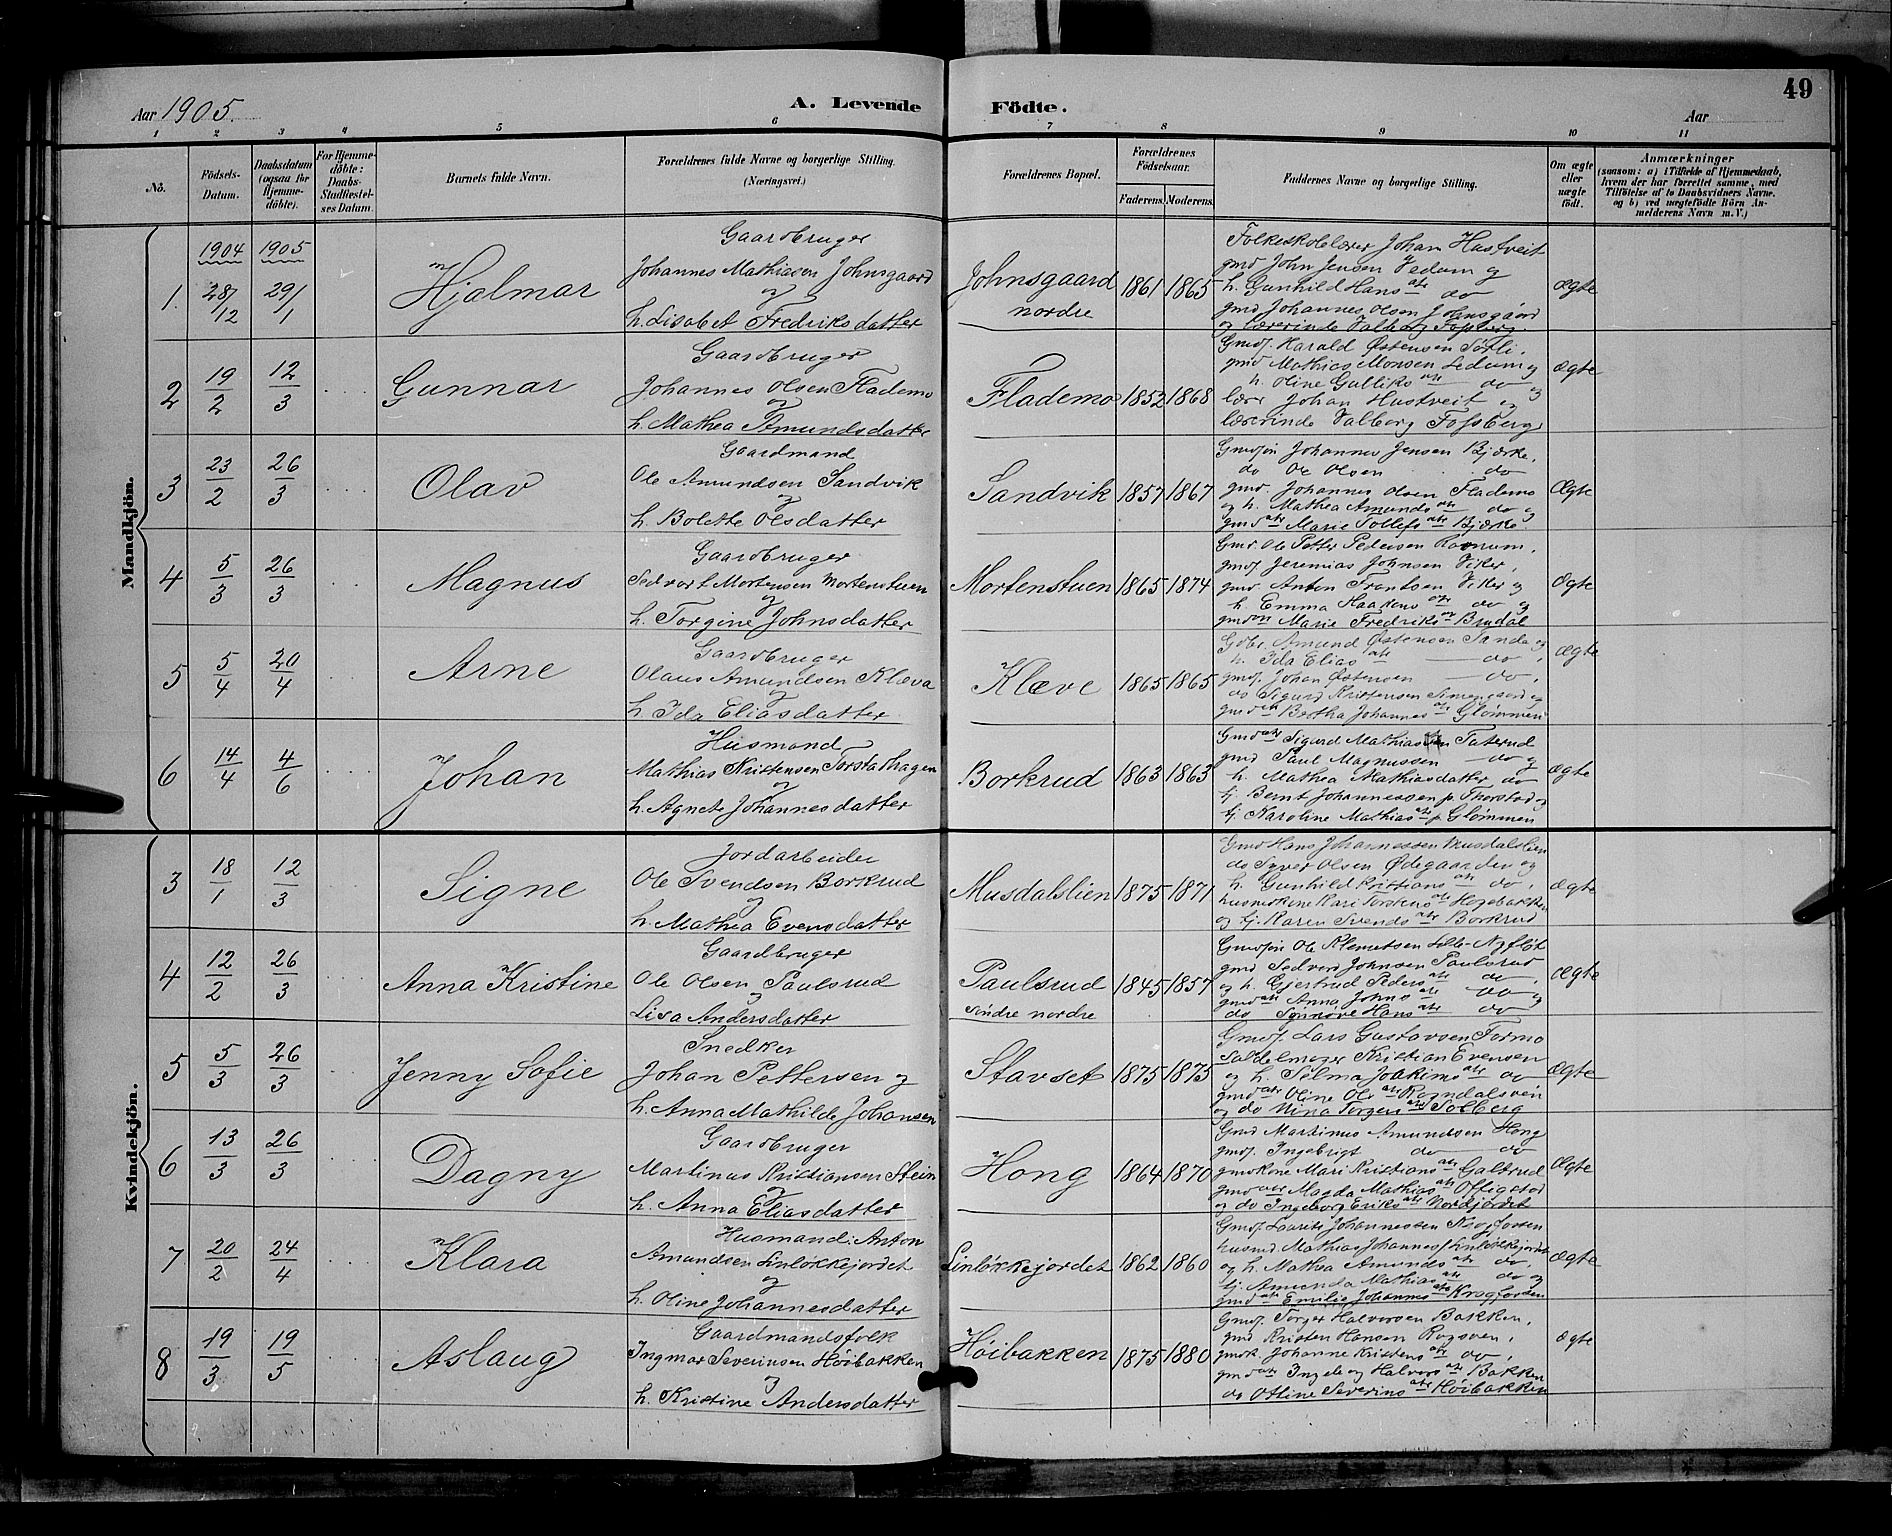 49
Aar 1905.
A. Levende Födte.
Aar
1 2 3 4 5 6 7 8 9 10 11
No.
Födsels-Datum.
Daabsdatum (ogsaa for Hjemme-döbte).
For Hjemme-döbte: Daabs-Stadfæstel-ses Datum.
Barnets fulde Navn.
Forældrenes fulde Navne og borgerlige Stilling.
(Næringsvei.)
Forældrenes Bopæl.
Forældrenes Födselsaar.
Faderens. Moderens.
Faddernes Navne og borgerlige Stilling.
Om ægte eller uægte födt.
Anmærkninger
(saasom: a) i Tilfælde af Hjemmedaab, hvem der har forrettet samme, med Tilföielse af to Daabsvidners Navne, og b) ved uægtefödte Börn An-melderens Navn m. V.)
Mandkjön.
1904 1905
1. 28/12 29/1 Hjalmar
Gaardbruger
Johannes Mathiasen Johnsgaard
og
h. Lisabet Fredriksdatter
Johnsgaard
nordre
1861 1865
Folkeskolelærer Johan Hustveit
gmd John Jensen Vedum og
h. Gunhild Hans dtr do
gmd Johannes Olsen Johnsgaard
og lærerinde Valborg Fossberg
Ægte
2 19/2 12/3 Gunnar
Gaardbruger
Johannes Olsen Flademo
og
h. Mathea Amundsdatter
Flademo 1852 1868
Gmdsj. Harald Østensen Søfli,
gmd Mathias Monsen Sedum og
h. Oline Gulliks dtr do
lærer Johan Hustveit og
lærerinde Valborg Fossberg
Ægte
3 23/2 26/3 Olav
Gaardmand
Ole Amundsen Sandvik
og
h. Bolette Olsdatter
Sandvik 1857 1867
Gmdsjøn Johannes Jensen Bjerke,
do Ole Olsen do
gmd. Johannes Olsen Flademo
og h. Mathea Amunds dtr do og
gmd dtr Marie Tollefs dtr Bjerke
Ægte
4 5/3 26/3 Magnus
Gaardbruger
Sedvart Mortensen Mortenstuen
og
h. Torgine Johnsdatter
Mortenstuen 1865 1874
Gmd. Ole Petter Pedersen Ravnum,
gmdsj. Jeremias Johnsen Viker,
gmd Anton Frantsen Viker og
h. Emma Haakens dtr do og
gmd dtr Marie Fredriks dtr Brudal
Ægte
5 5/4 20/4 Arne
Gaardbruger
Olaus Amundsen Klæva
og
h. Ida Eliasdatter
Klæve 1865 1865
Gdbr. Amund Østensen Sande og
h. Ida Elias dtr do,
gmdsj. Johan Østensen do,
do Sigurd Kristensen Simengaard og
gmd dtr Bertha Johannes dtr Glømmen
Ægte
6 14/4 4/6 Johan
Husmand
Mathias Kristensen Torstadhagen
og
h. Agnete Johannesdatter
Borkrud 1863 1863
Gmd Sigurd Mathiassen Taterud
gmd Paul Magnussen do og
h. Mathea Mathiasdatter do
tj. Bernt Johannessen p. Thorstad og
tj. Karoline Mathias dtr p. Glømmen
Ægte
Kvindekjön.
3 18/1 12/3 Signe
Jordarbeider
Ole Svendsen Borkrud
og
h. Mathea Evensdatter
Musdalslien 1875 1871
Gmd Hans Johannessen Musdalslien
do Syver Olsen Ødegaarden og
h. Gunhild Kristians dtr do,
husmdkone Kari Torstens dtr Hegebakken
og tj. Karen Svends dtr Borkrud
Ægte
4 12/2 26/3 Anna Kristine
Gaardbruger
Ole Olsen Paulsrud
og
Lisa Andersdatter
Paulsrud
søndre nordre
1845 1857
Gmdsjøn Ole Klemetsen Nyfløt
gmd Sedvard Johnsen Paulsrud
og h. Gjertrud Peders dtr do,
gmd dtr Anna Johns dtr do og
do Sønnøve Hans dtr do
Ægte
5 5/3 26/3 Jenny Sofie
Snedker
Johan Pettersen og
h. Anna Mathilde Johansen
Stavset 1875 1875
Gmdsj. Lars Gustavsen Formo
Sadelmager Kristian Evensen
og h. Selma Joakims dtr do
gmd dtr Oline Ols dtr Rogndalsven
og do Nina Torgers dtr Solberg
Ægte
6 13/3 26/3 Dagny
Gaardbruger
Martinus Kristiansen Stein
og
h. Anna Eliasdatter
Hong 1864 1870
Gmd Martinus Amundsen Hong
gmdsj. Ingebrigt do do
gmdkone Mari Kristians dtr Galtrud
gmd dtr Magda Mathias dtr Offigstad
og do Ingeborg Eriks dtr Nordjordet
Ægte
7 20/2 24/4 Klara
Husmand: Anton
Amundsen Linløkkejordet
og
h. Oline Johannesdatter
Linløkkejordet 1862 1860
Gmdsj. Laurits Johannessen Kragfossen
husmd. Mathias Johannes. Linløkkejordet
og h. Mathea Amunds dtr do,
tj. Amunda Mathias dtr do og
gmd dtr Emilie Johannes dtr Kragfossen
Ægte
8 19/3 19/5 Aslaug
Gaardmandsfolk
Ingmar Severinsen Høibakken
og
h. Kristine Andersdatter
Høibakken 1875 1880
Gmdsj. Torger Halvorsen Bakken,
gmd Kristen Hansen Rogsven,
gmdk. Johanne Kristens dtr do,
gmd dtr Ingeleog Halvors dtr Bakken
do Otline Severins dtr Høibakken
Ægte